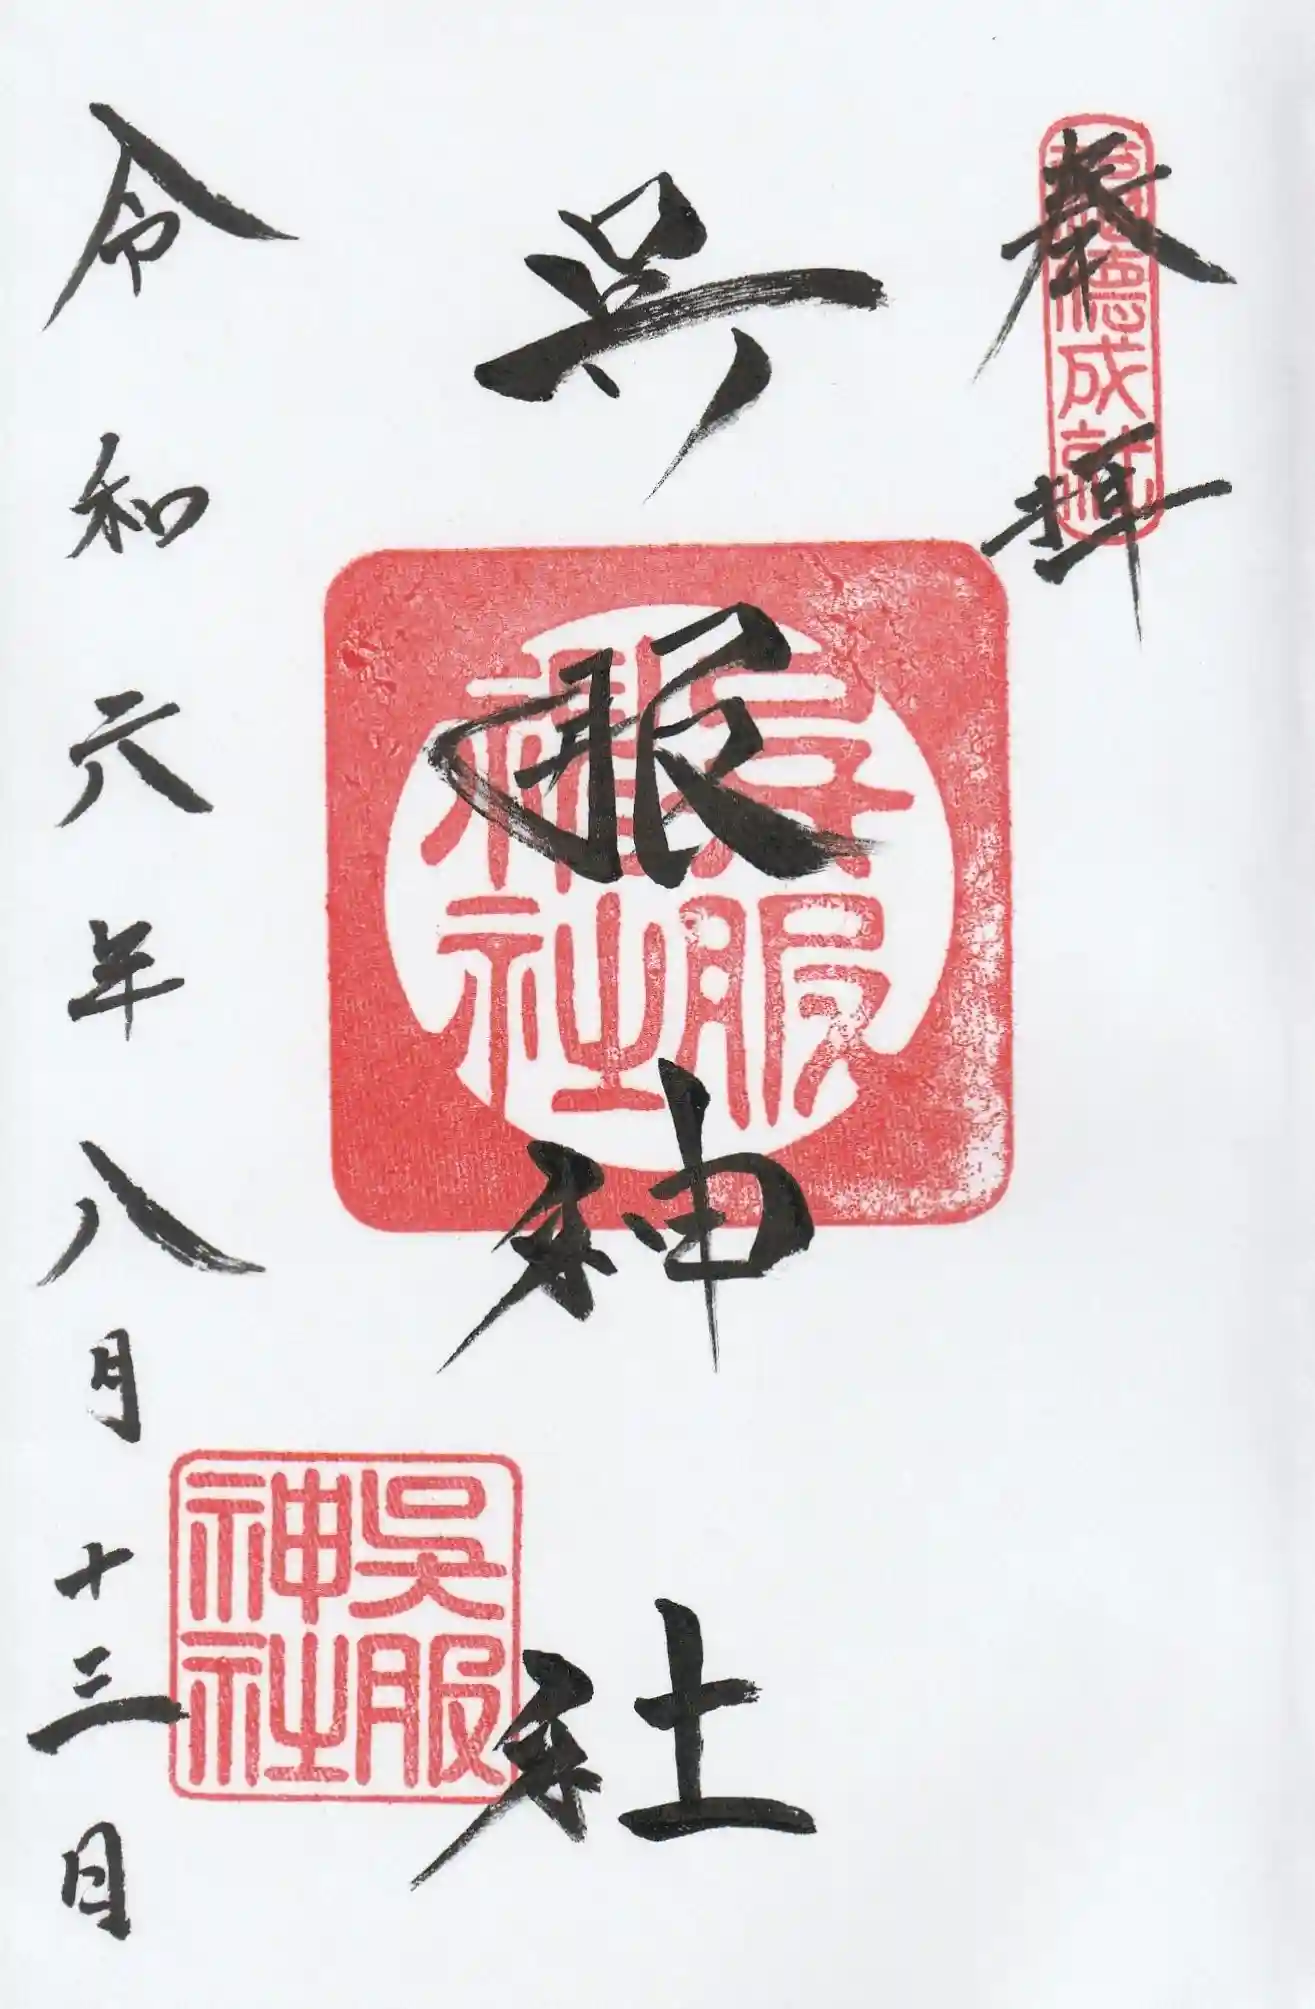 奉拝
呉服神社
呉服神社
呉服神社
令和六年八月十三日